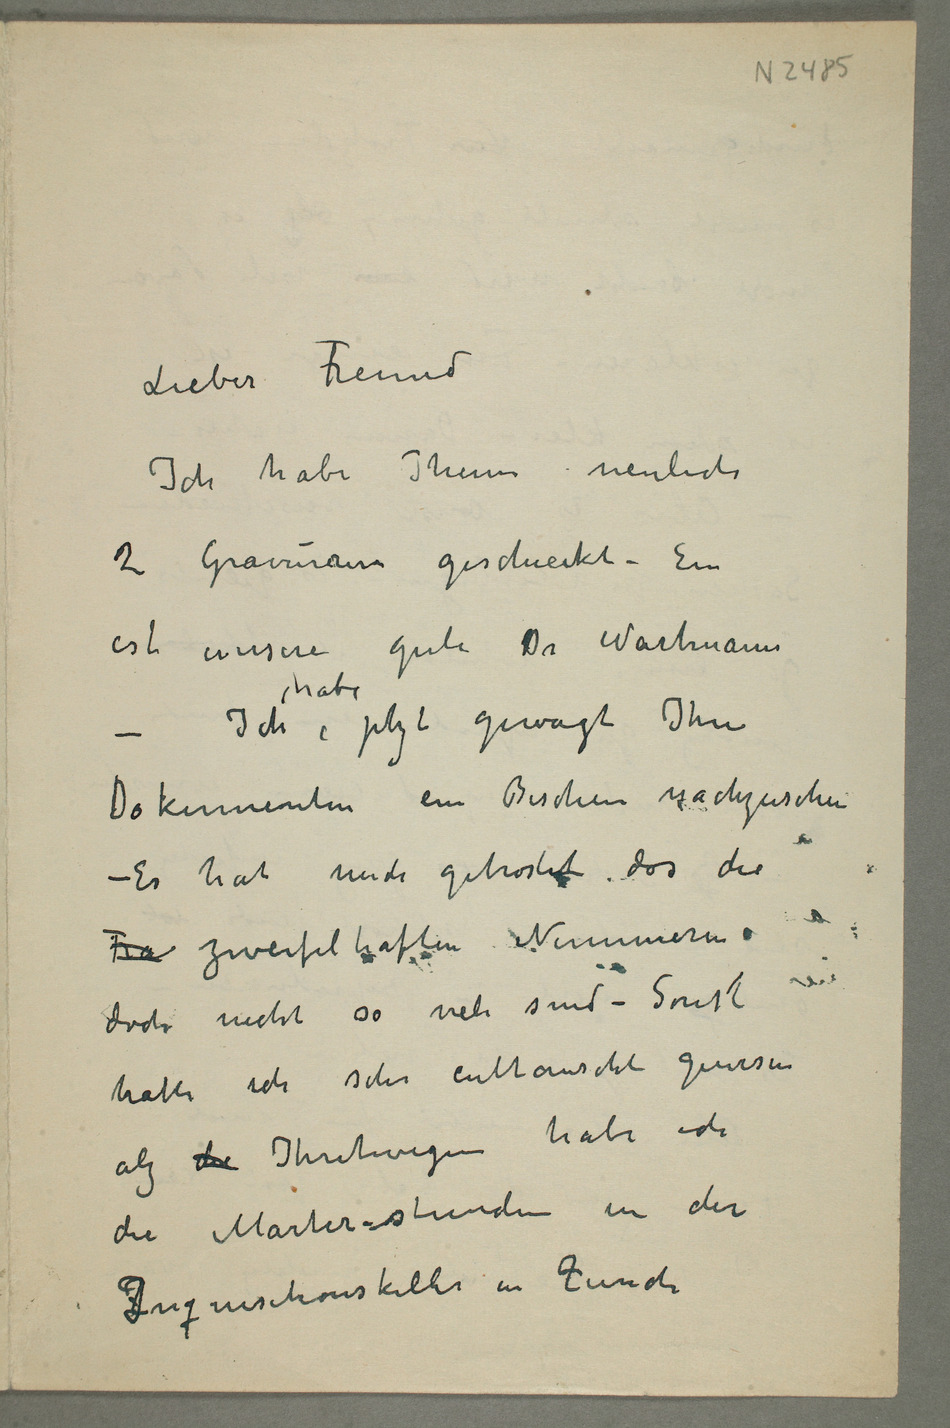 N 2485
Lieber Freund
Ich habe Ihnen neulich
2 Gravuren geschickt – Ein
ist unsere gute Dr Wartmann
– Ich habe jetzt gewagt Ihre
Dokumenten ein Bischen nachzusehen
– Es hat mich getrostet das die
Fra zweifelhaften Nummern
doch nicht so viele sind – Sonst
hatte ich sehr enttauscht gewesen
alz die Ihretwegen habe ich
die Marter-stunden in der
Inquisitionskeller in Zurich